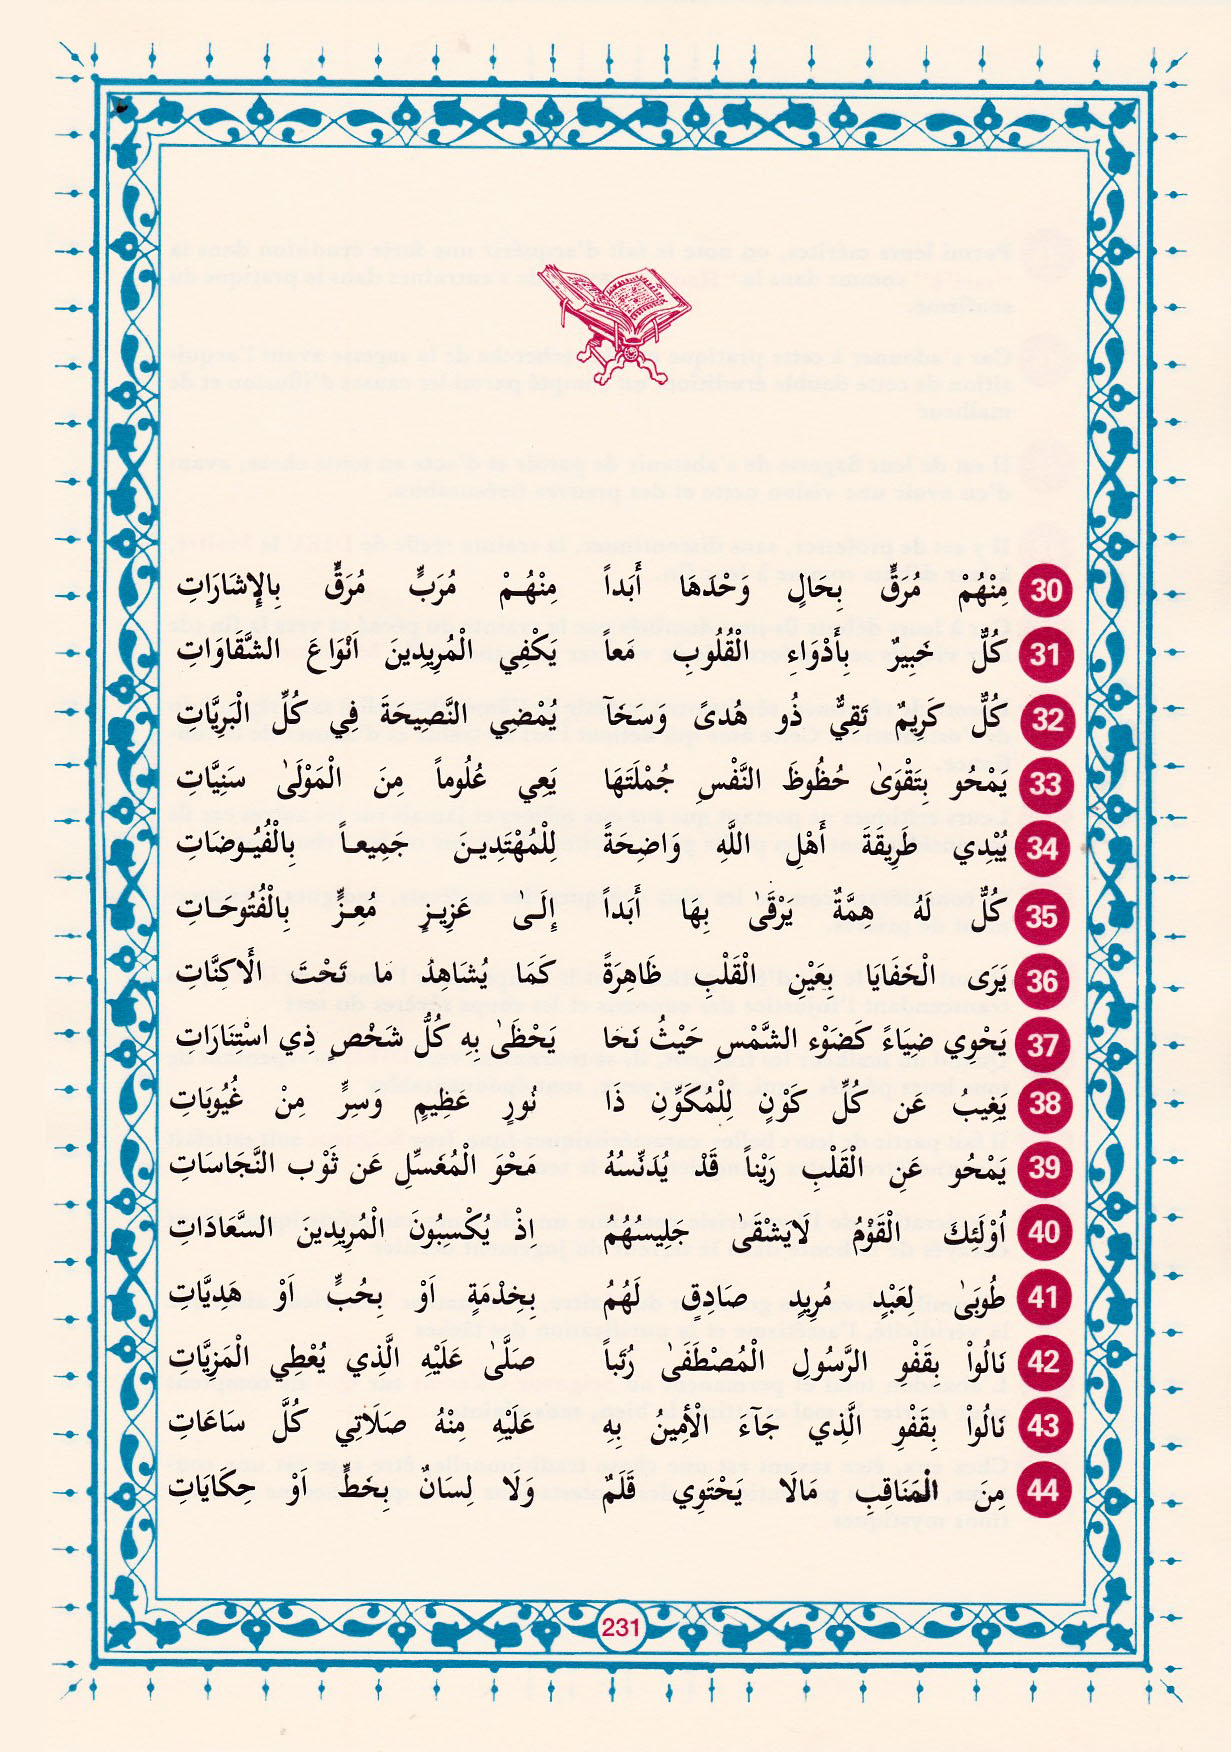 30 مِنْهُمْ مُرَقٍّ بِحَالٍ وَحْدَهَا أَبَداً مِنْهُمْ مُرَبٍّ مُرَقٍّ بِالإِشَارَاتِ
31 كُلٌّ خَبِيرٌ بِأَدْوَاءِ الْقُلُوبِ مَعاً يَكْفِي الْمُرِيدِينَ اَنْوَاعَ الشَّقَاوَاتِ
32 كُلٌّ كَرِيمٌ تَقِيٌّ ذُو هُدىً وَسخَآ يُمْضِي النَّصِيحَةَ فِي كُلِّ الْبَرِيَّاتِ
33 يَمْحُو بِتَقْوَىٰ حُظُوظَ النَّفْسِ جُمْلَتَهَا يَعِي عُلُوماً مِنَ الْمَوْلَىٰ سَنِيَّاتِ
34 يُبْدِي طَرِيقَةَ أَهْلِ اللَّهِ وَاضِحَةً لِلْمُهْتَدِينَ جَمِيعاً بِالْفُيُوضَاتِ
35 كُلٌّ لَهُ همَّةٌ يَرْقَىٰ بِهَا أَبَداً إِلَىٰ عَزِيزٍ مُعِزٍّ بِالْفُتُوحَاتِ
36 يَرَى الْخَفَايَا بِعَيْنِ الْقَلْبِ ظَاهِرَةً كَمَا يُشَاهِدُ ما تَحْتَ الْأَكِنَّاتِ
37 يَحْوِي ضِيَاءً كَضَوْء الشَّمْسِ حَيْثُ نَحَا يَحْظَىٰ بِهِ كُلُّ شَخْصٍ ذِي اسْتْنَارَاتِ
38 يَغِيبُ عَن كُلِّ كَوْنٍ لِلْمُكَوِّنِ ذَا نُورٍ عَظِيمٍ وَسِرٍّ مِنْ غُيُوبَاتِ
39 يَمْحُو عَنِ الْقَلْبِ رَيْناً قَدْ يُدَنِّسُهُ مَحْوَ الْمُغَسِّلِ عَن ثَوْب النَّجَاسَاتِ
40 اُوْلَئِكَ الْقَوْمُ لَايَشْقَىٰ جَلِيسُهُمُ اذْ يُكْسِبُونَ الْمُرِيدِينَ السَّعَادَاتِ
41 طُوبَىٰ لِعَبْدٍ مُرِيدٍ صَادِقٍ لَهُمُ بِخِدْمَةٍ اَوْ بِحُبٍّ اَوْ هَديَّاتِ
42 نَالُواْ بِقَفْو الرَّسُولِ الْمُصْطَفَىٰ رُتَباً صَلَّىٰ عَلَيْهِ الَّذِي يُعْطِي الْمَزِيَّاتِ
43 نَالُواْ بِقَفْوِ الَّذِي جَآءَ الْأَمِينُ بِهِ عَلَيْهِ مِنْهُ صَلَاتِي كُلَّ سَاعَاتِ
44 مِنَ الْمَنَاقِبِ مَالَا يَحْتَوِي قَلَمٌ وَلَا لِسَانٌ بِخَطٍّ اَوْ حِكَايَاتِ
231